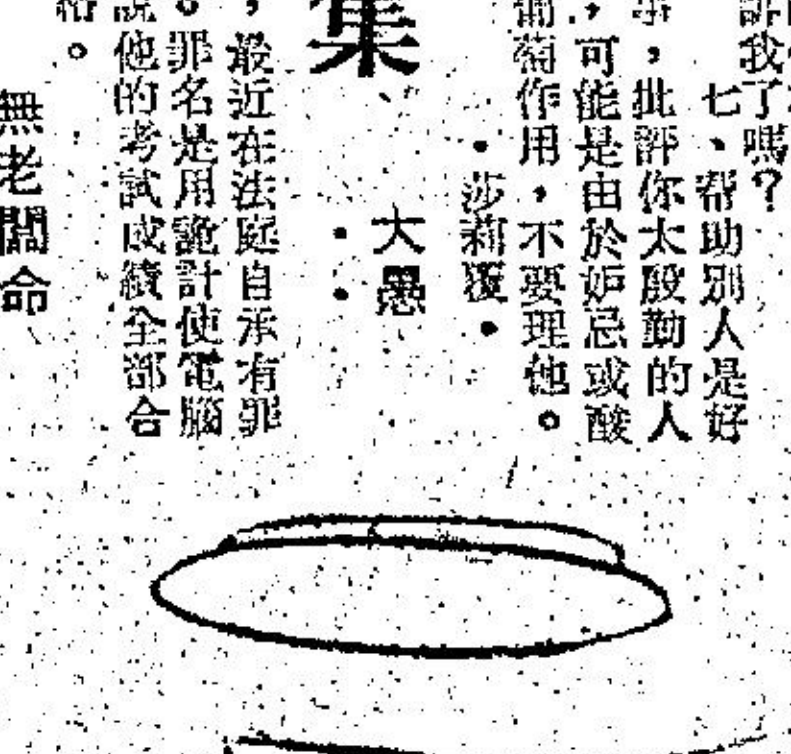 訴我了嗎？
七、帮助別人是好
事，批評你太殷勤的人
，可能是由於妒忌或酸
葡萄作用，不要理他。
・莎莉覆・
集
大愚
，最近在法庭自承有罪
。罪名是用詭計使電腦
說他的考試成績全部合
格。
無老闆命